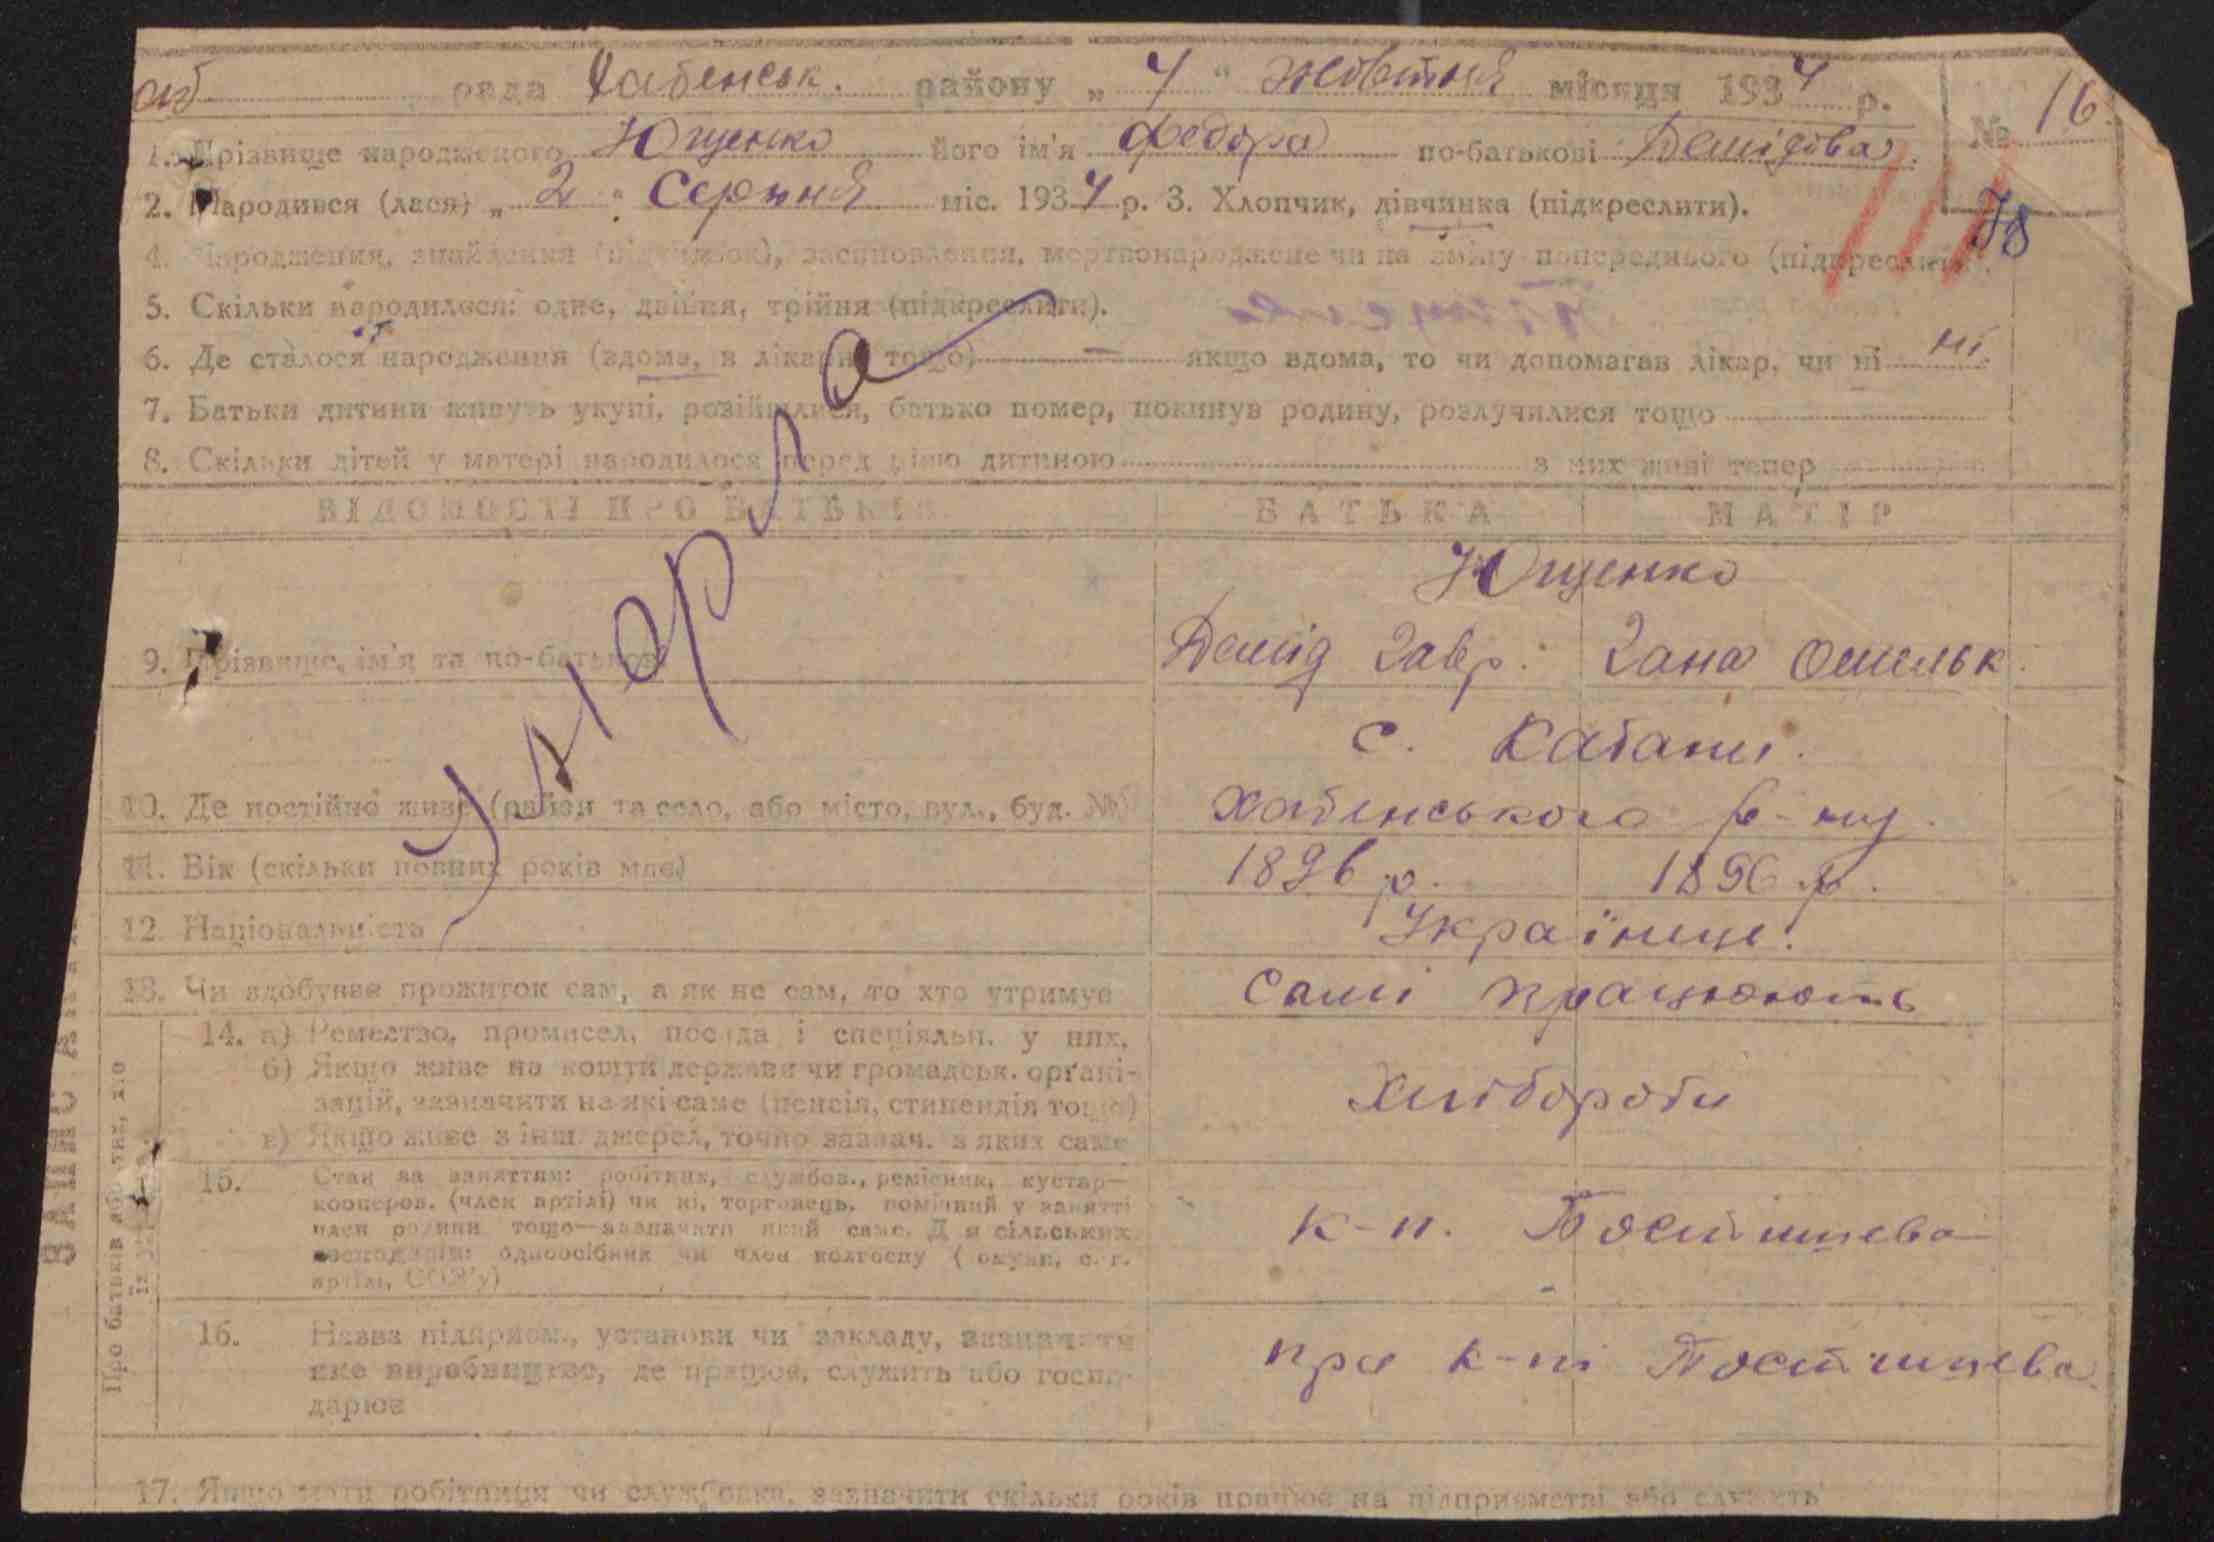 рада Хабенськ. району „ 4 " Жовтня місяця 1934 р.
№ 16.
1. Прізвище народженого Ющенко його ім'я Федора по-батькові Демідова.
2. Народився (лася) „ 2 " Серпня міс. 1934 р. 3. Хлопчик, дівчинка (підкреслити).
78
4. Народження, знайдення (підкидьок), засиновлення, мертвонароджене чи на зміну попереднього (підкреслити).
5. Скільки народилося: одне, двійня, трійня (підкреслити).
6. Де сталося народження (вдома, в лікарні тощо) — якщо вдома, то чи допомагав лікар, чи ні ні.
7. Батьки дитини живуть укупі, розійшлися, батько помер, покинув родину, розлучилися тощо
8. Скільки дітей у матері народилося перед цією дитиною з них живі тепер
Умерла
ВІДОМОСТІ ПРО БАТЬКІВ БАТЬКА МАТІР
Ющенко
9. Прізвище, ім'я та по-батькові Демід Гавр. Гана Омельк.
с. Кабани.
10. Де постійно живе (район та село, або місто, вул., буд. № Хабенського р-ну.
11. Вік (скільки повних років має) 1896 р. 1896 р.
12. Національність Українці.
13. Чи здобуває прожиток сам, а як не сам, то хто утримує Самі працюють
14. а) Ремество, промисел, посада і спеціяльн. у них,
б) Якщо живе на кошти держави чи громадськ. орґані-
зацій, зазначити на які саме (пенсія, стипендія тощо)
в) Якщо живе з інш. джерел, точно зазнач. з яких саме
Хлібороби
15. Стан за заняттям: робітник, службов., ремісник, кустар—
кооперов. (член артілі) чи ні, торговець, помічний у занятті
член родини тощо—зазначити який саме. Для сільських
господарів: одноосібник чи член колгоспу (комуни, с.-г.
артілі, СОЗ'у)
к-п. Постишева
16. Назва підприєм., установи чи закладу, зазначити
яке виробництво, де працює, служить або госпо-
дарює
при к-пі Постишева
17. Якщо мати робітниця чи службовка, зазначити скільки років працює на підприємстві або служить
ЗАПИС
Про батьків або тих, хто